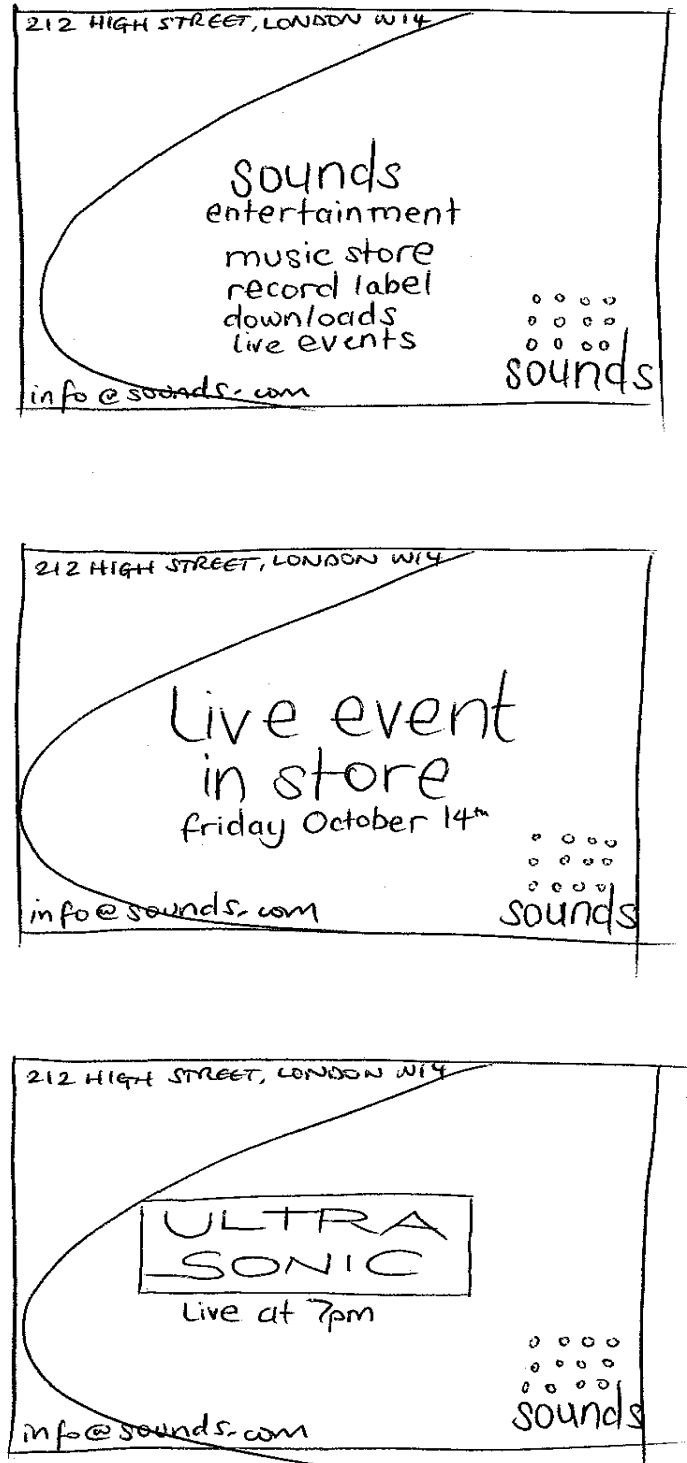 212 HIGH STREET, LONDON W14
sounds
entertainment
music store
record label
downloads
live events
sounds
info@sounds.com
212 HIGH STREET, LONDON W14
Live event
in store
friday October 14th
sounds
info@sounds.com
212 HIGH STREET, LONDON W14
ULTRA
SONIC
Live at 7pm
sounds
info@sounds.com